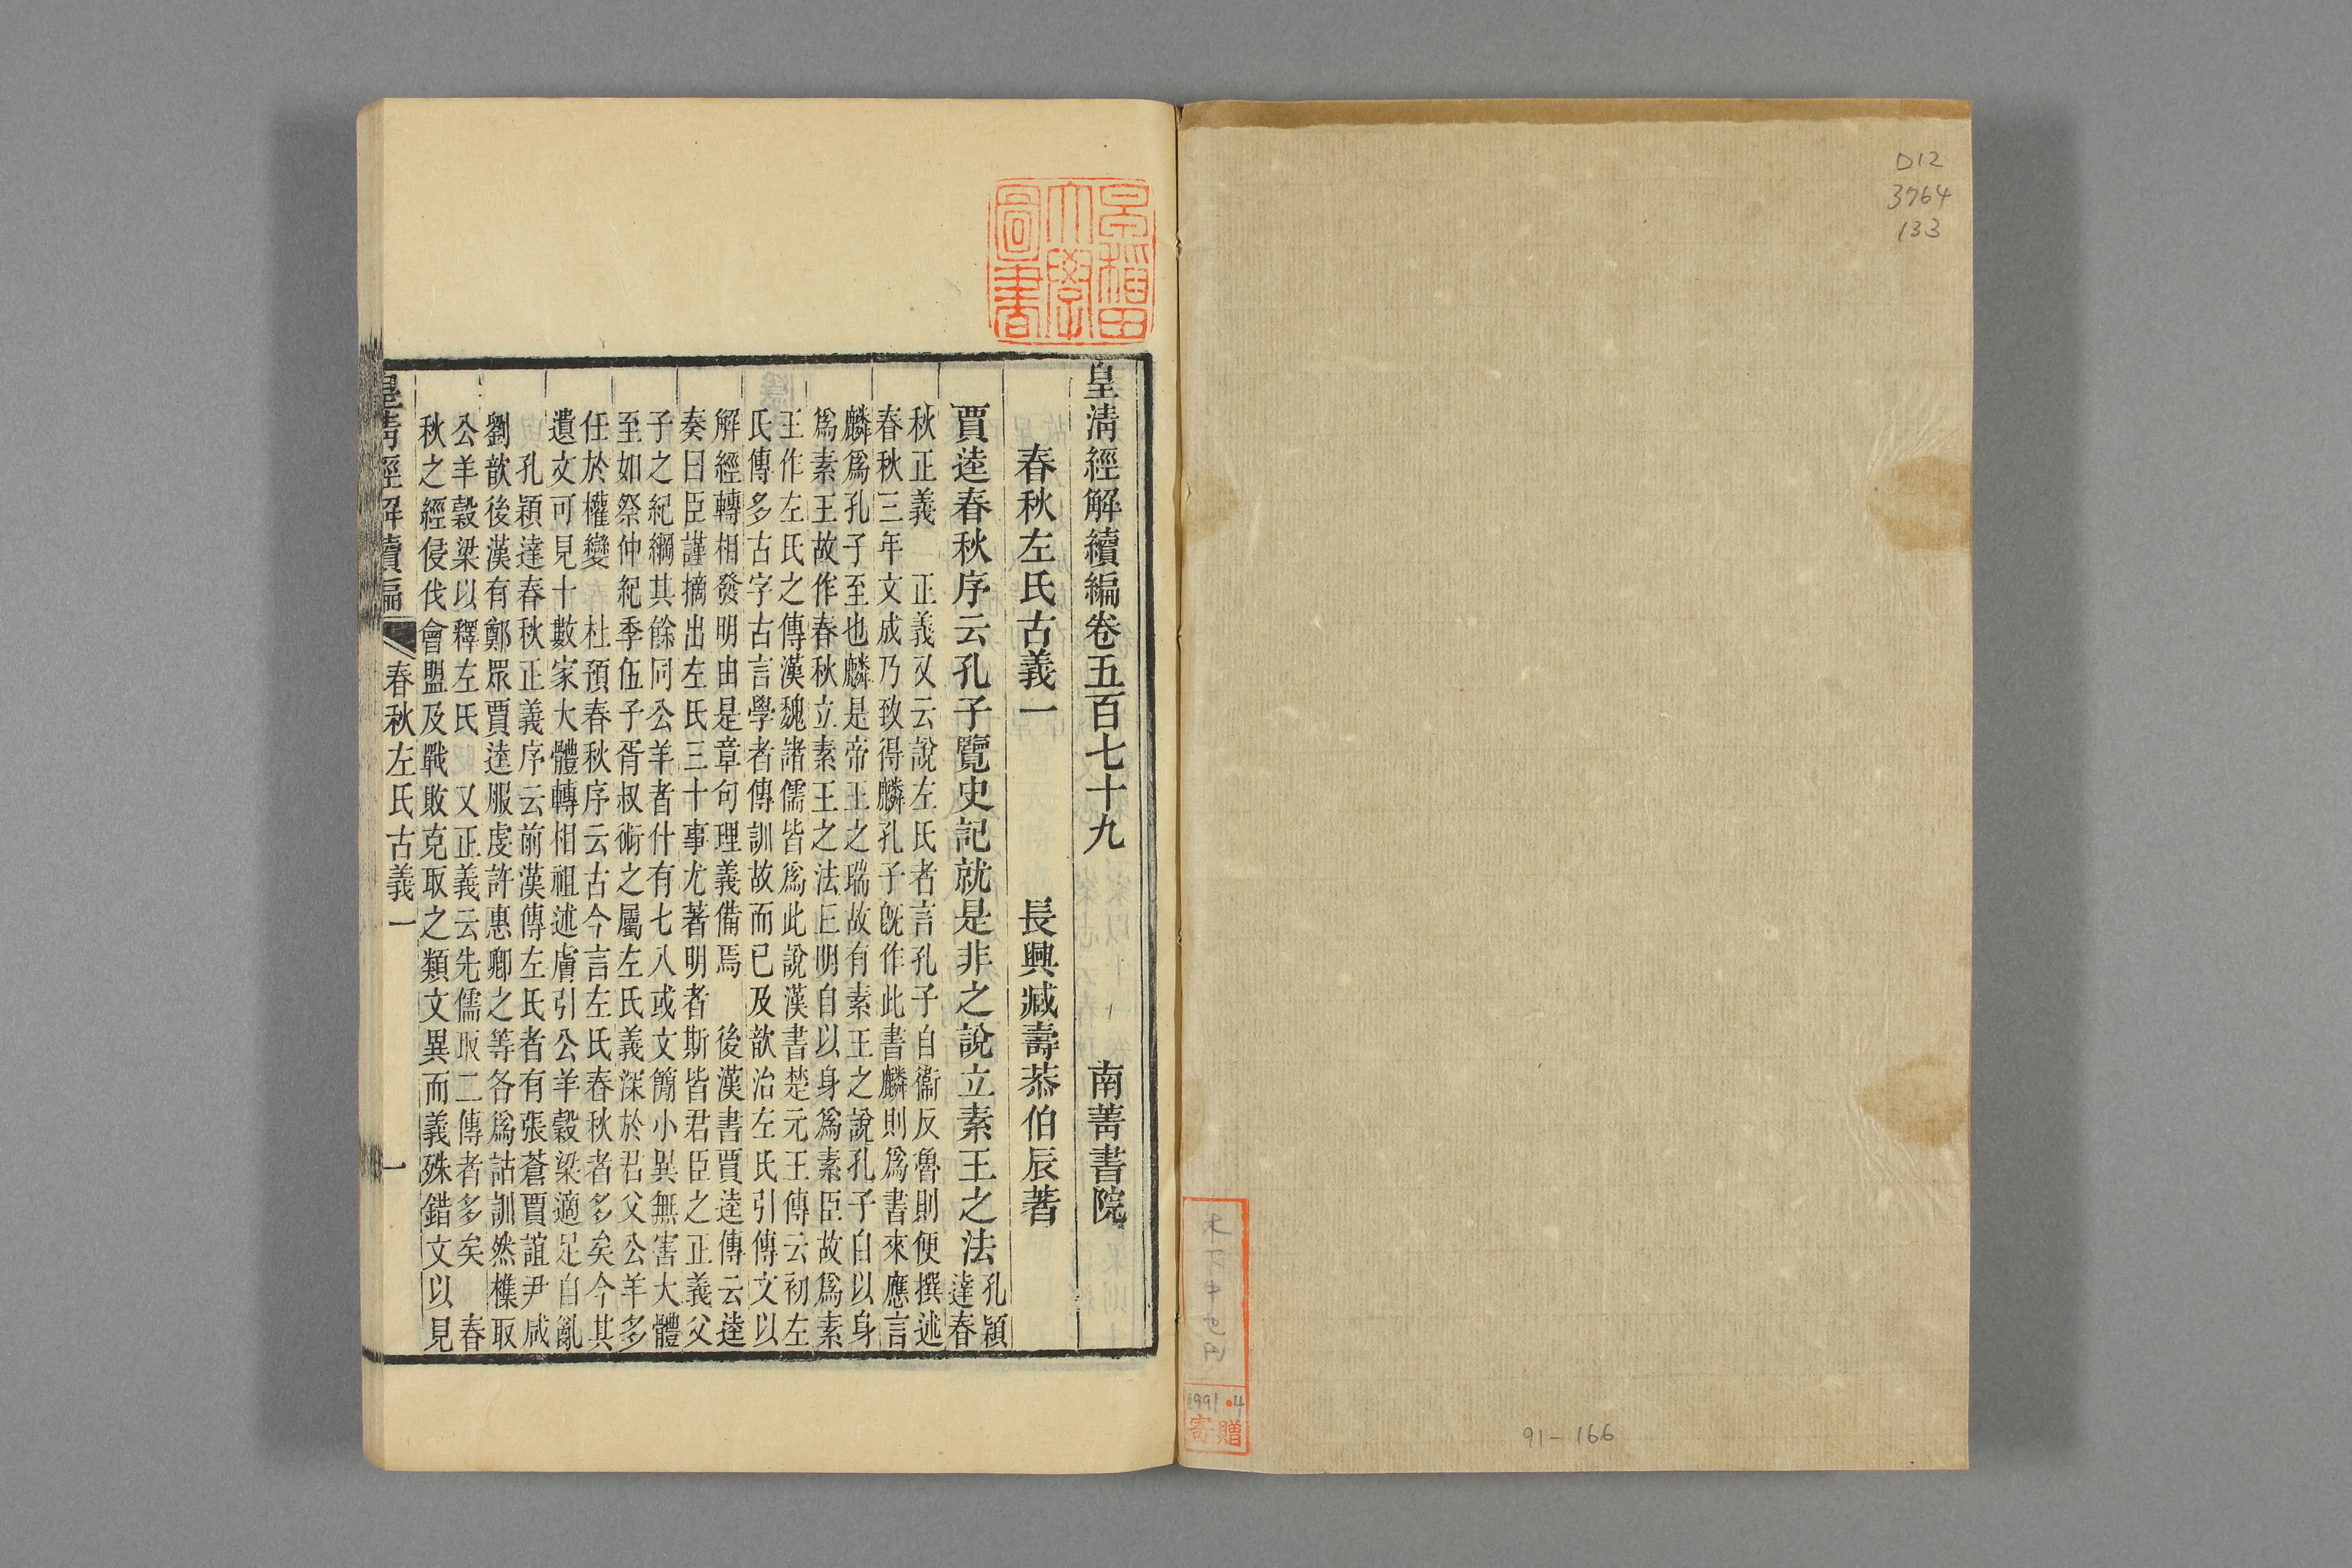 D12
3764
133
91-166
1991・4
寄贈
早稲田大學圖書
皇清經解續編卷五百七十九　南菁書院
春秋左氏古義一　長興臧壽恭伯辰著
賈逵春秋序云孔子覽史記就是非之說立素王之法孔穎
達春
秋正義　正義又云說左氏者言孔子自衞反魯則便撰述
春秋三年文成乃致得麟孔子旣作此書麟則爲書來應言
麟爲孔子至也麟是帝王之瑞故有素王之說孔子自以身
爲素王故作春秋立素王之法丘明自以身爲素臣故爲素
王作左氏之傳漢魏諸儒皆爲此說漢書楚元王傳云初左
氏傳多古字古言學者傳訓故而已及歆治左氏引傳文以
解經轉相發明由是章句理義備焉　後漢書賈逵傳云逵
奏曰臣謹摘出左氏三十事尤著明者斯皆君臣之正義父
子之紀綱其餘同公羊者什有七八或文簡小異無害大體
至如祭仲紀季伍子胥叔術之屬左氏義深於君父公羊多
任於權變　杜預春秋序云古今言左氏春秋者多矣今其
遺文可見十數家大體轉相祖述膚引公羊穀梁適足自亂
孔穎達春秋正義序云前漢傳左氏者有張蒼賈誼尹咸
劉歆後漢有鄭眾賈逵服虔許惠卿之等各爲詁訓然襍取
公羊穀梁以釋左氏　又正義云先儒取二傳者多矣　春
秋之經侵伐會盟及戰敗克取之類文異而義殊錯文以見
皇清經解續編　春秋左氏古義一　一